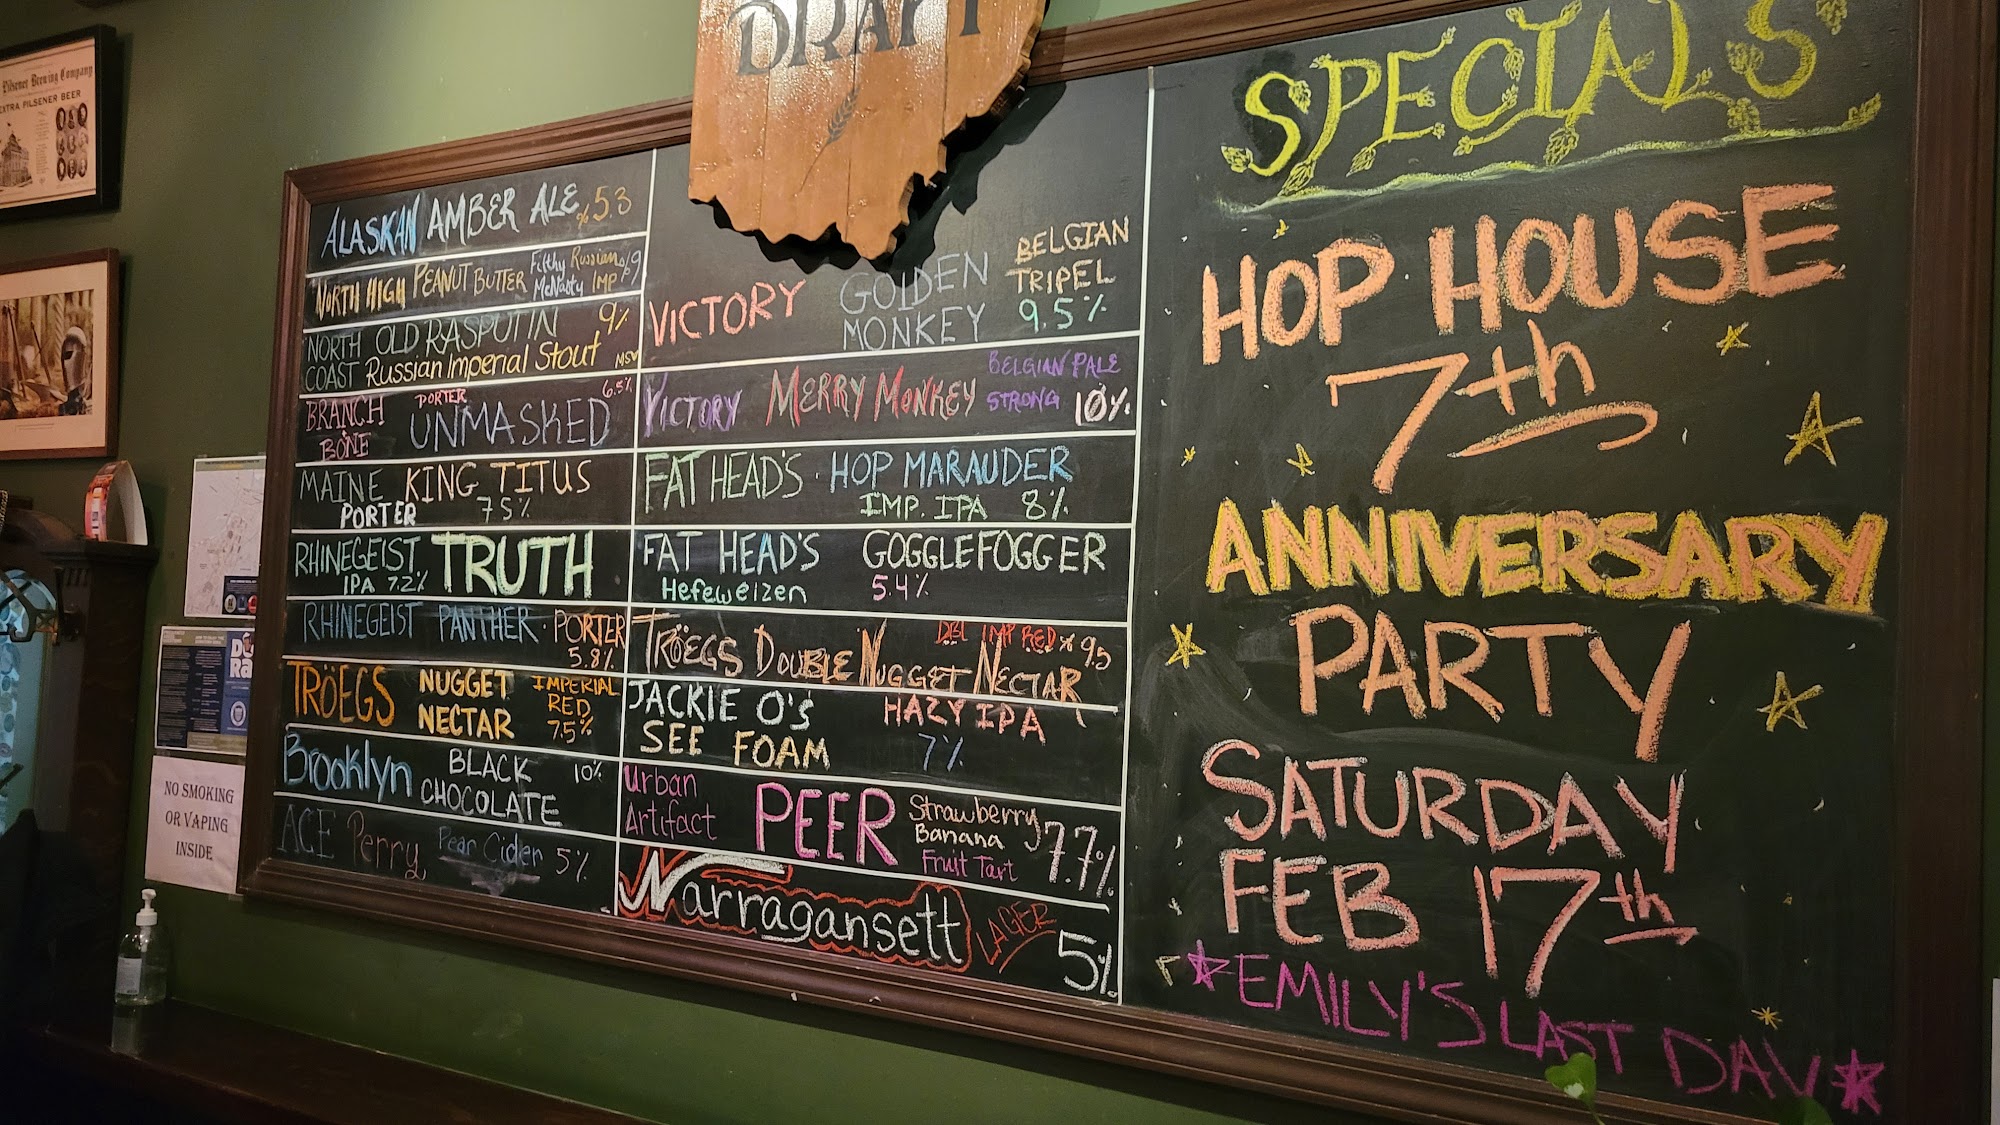 Pilsener Brewing Company
EXTRA PILSENER BEER
NO SMOKING
OR VAPING
INSIDE
DRAFT
ALASKAN AMBER ALE % 5.3
NORTH HIGH PEANUT BUTTER Filthy McNasty Russian IMP % 9
NORTH COAST OLD RASPUTIN 9%
Russian Imperial Stout
BRANCH & BONE PORTER UNMASKED 6.5%
MAINE KING TITUS
PORTER 7.5%
RHINEGEIST TRUTH
IPA 7.2%
RHINEGEIST PANTHER · PORTER
5.8%
TRÖEGS NUGGET NECTAR IMPERIAL RED 7.5%
Brooklyn BLACK CHOCOLATE 10%
ACE Perry Pear Cider 5%
VICTORY GOLDEN MONKEY BELGIAN TRIPEL 9.5%
VICTORY MERRY MONKEY BELGIAN PALE STRONG 10%
FAT HEAD'S · HOP MARAUDER
IMP. IPA 8%
FAT HEAD'S GOGGLEFOGGER
Hefeweizen 5.4%
TRÖEGS DOUBLE NUGGET NECTAR DBL IMP RED % 9.5
JACKIE O'S HAZY IPA
SEE FOAM 7%
Urban Artifact PEER Strawberry Banana Fruit Tart 7.7%
Narragansett LAGER 5%
SPECIALS
HOP HOUSE
7th
ANNIVERSARY
PARTY
SATURDAY
FEB 17th
EMILY'S LAST DAY